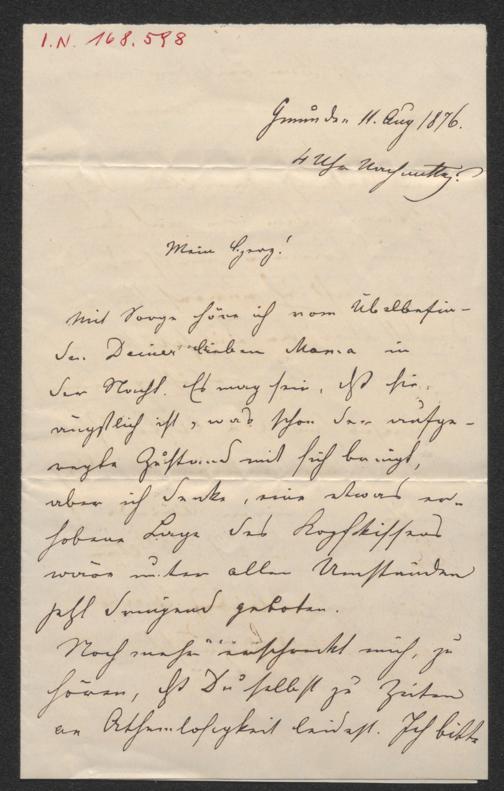 I.N. 168.598
Gmunden 11. Aug 1876.
4 Uhr Nachmittg.
Mein Herz!
Mit Sorge höre ich vom Übelbefin-
den Deiner lieben Mama in
der Nacht. Es mag sein, daß sie
ängstlich ist, was schon der aufge-
regte Zustand mit sich bringt,
aber ich denke, eine etwas er-
hobene Lage des Kopfkissens
wäre unter allen Umständen
jetzt dringend geboten.
Noch mehr erschreckt mich, zu
hören, daß Du selbst zu Zeiten
an Athemlosigkeit leidest. Ich bitte